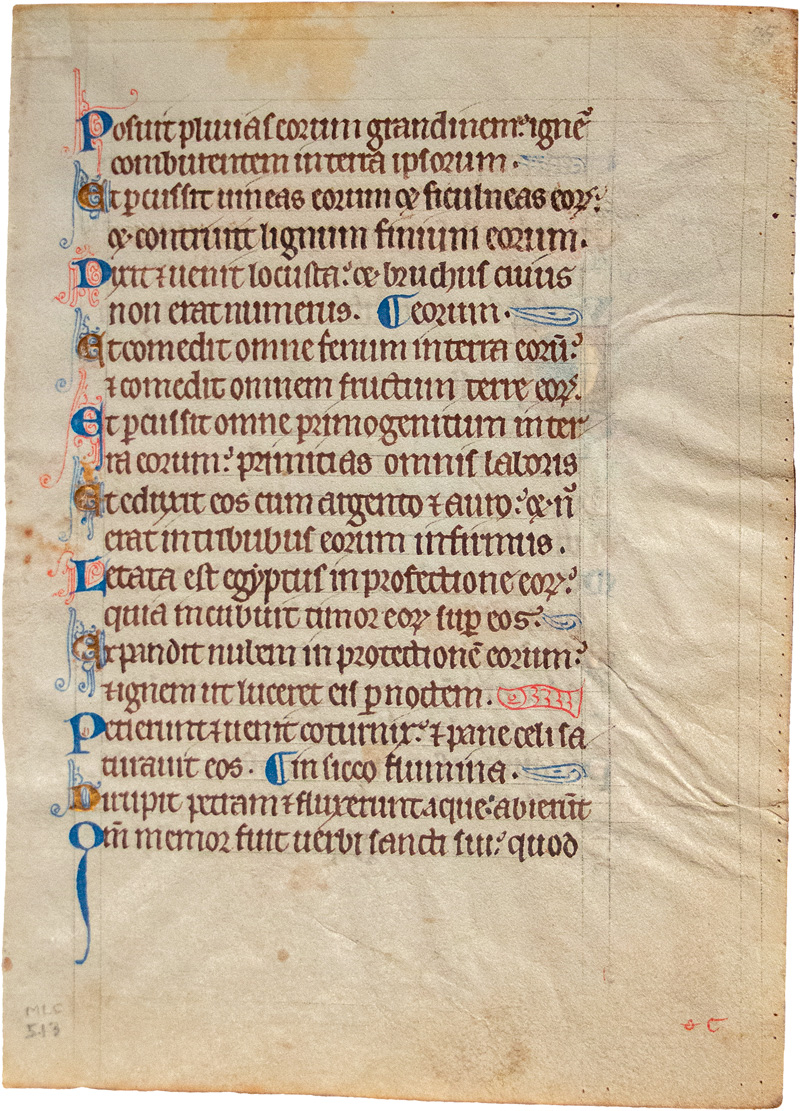 35
Posuit pluuias eorum grandinem: ignē
comburentem in terra ipsorum.
Et pcussit uineas eorum ⁊ ficulneas eoꝝ:
⁊ contriuit lignum finium eorum.
Dixit ⁊ uenit locusta: ⁊ bruchus cuius
non erat numerus. ¶ eorum.
Et comedit omne fenum in terra eorū:
⁊ comedit omnem fructum terre eoꝝ.
Et pcussit omne primogenitum in ter
ra eorum: primicias omnis laboris
Et eduxit eos cum argento ⁊ auro: ⁊ nō
erat in tribubus eorum infirmus.
Letata est egyptus in profectione eoꝝ:
quia incubuit timor eoꝝ sup eos:
Expandit nubem in protectionē eorum:
⁊ ignem ut luceret eis p noctem.
Petierunt ⁊ uenit coturnix: ⁊ pane celi sa
turauit eos. ¶ in sicco flumina.
Dirupit petram ⁊ fluxerunt aque: abierūt
Qm̄ memor fuit uerbi sancti sui: quod
MLC
513